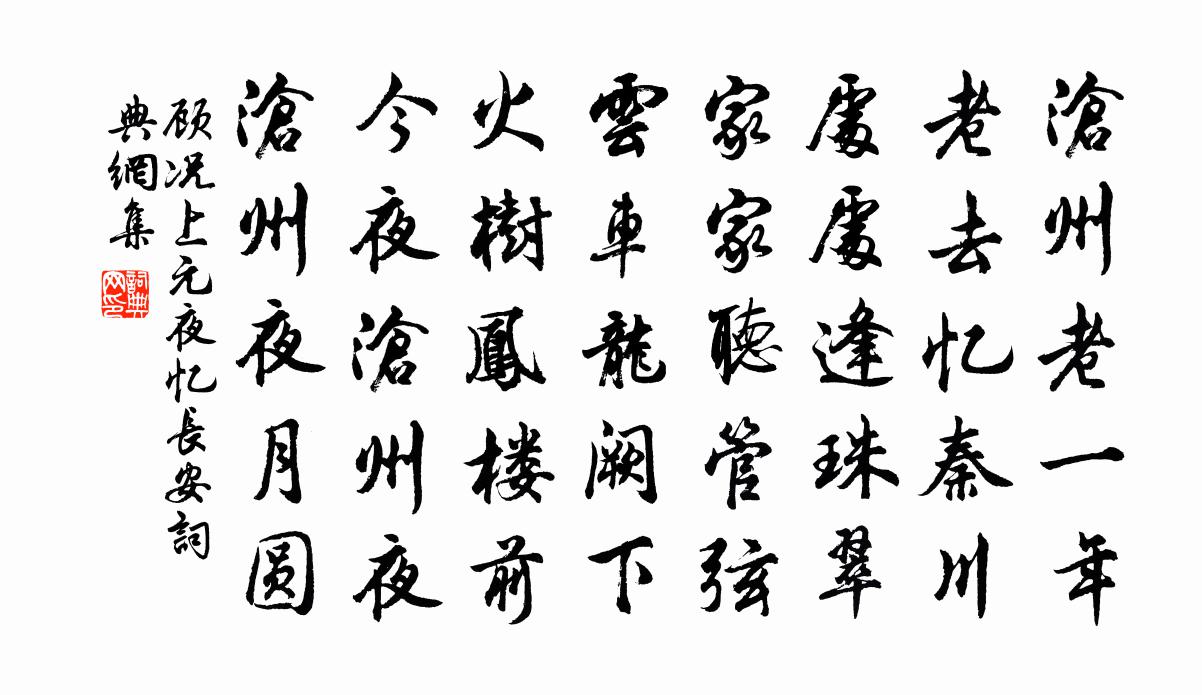 滄州老一年
老去忆秦川
處處逢珠翠
家家聽管弦
雲車龍阙下
火樹鳳楼前
今夜滄州夜
滄州夜月圆
顾况上元夜忆長安詞
典網集
詞典网印